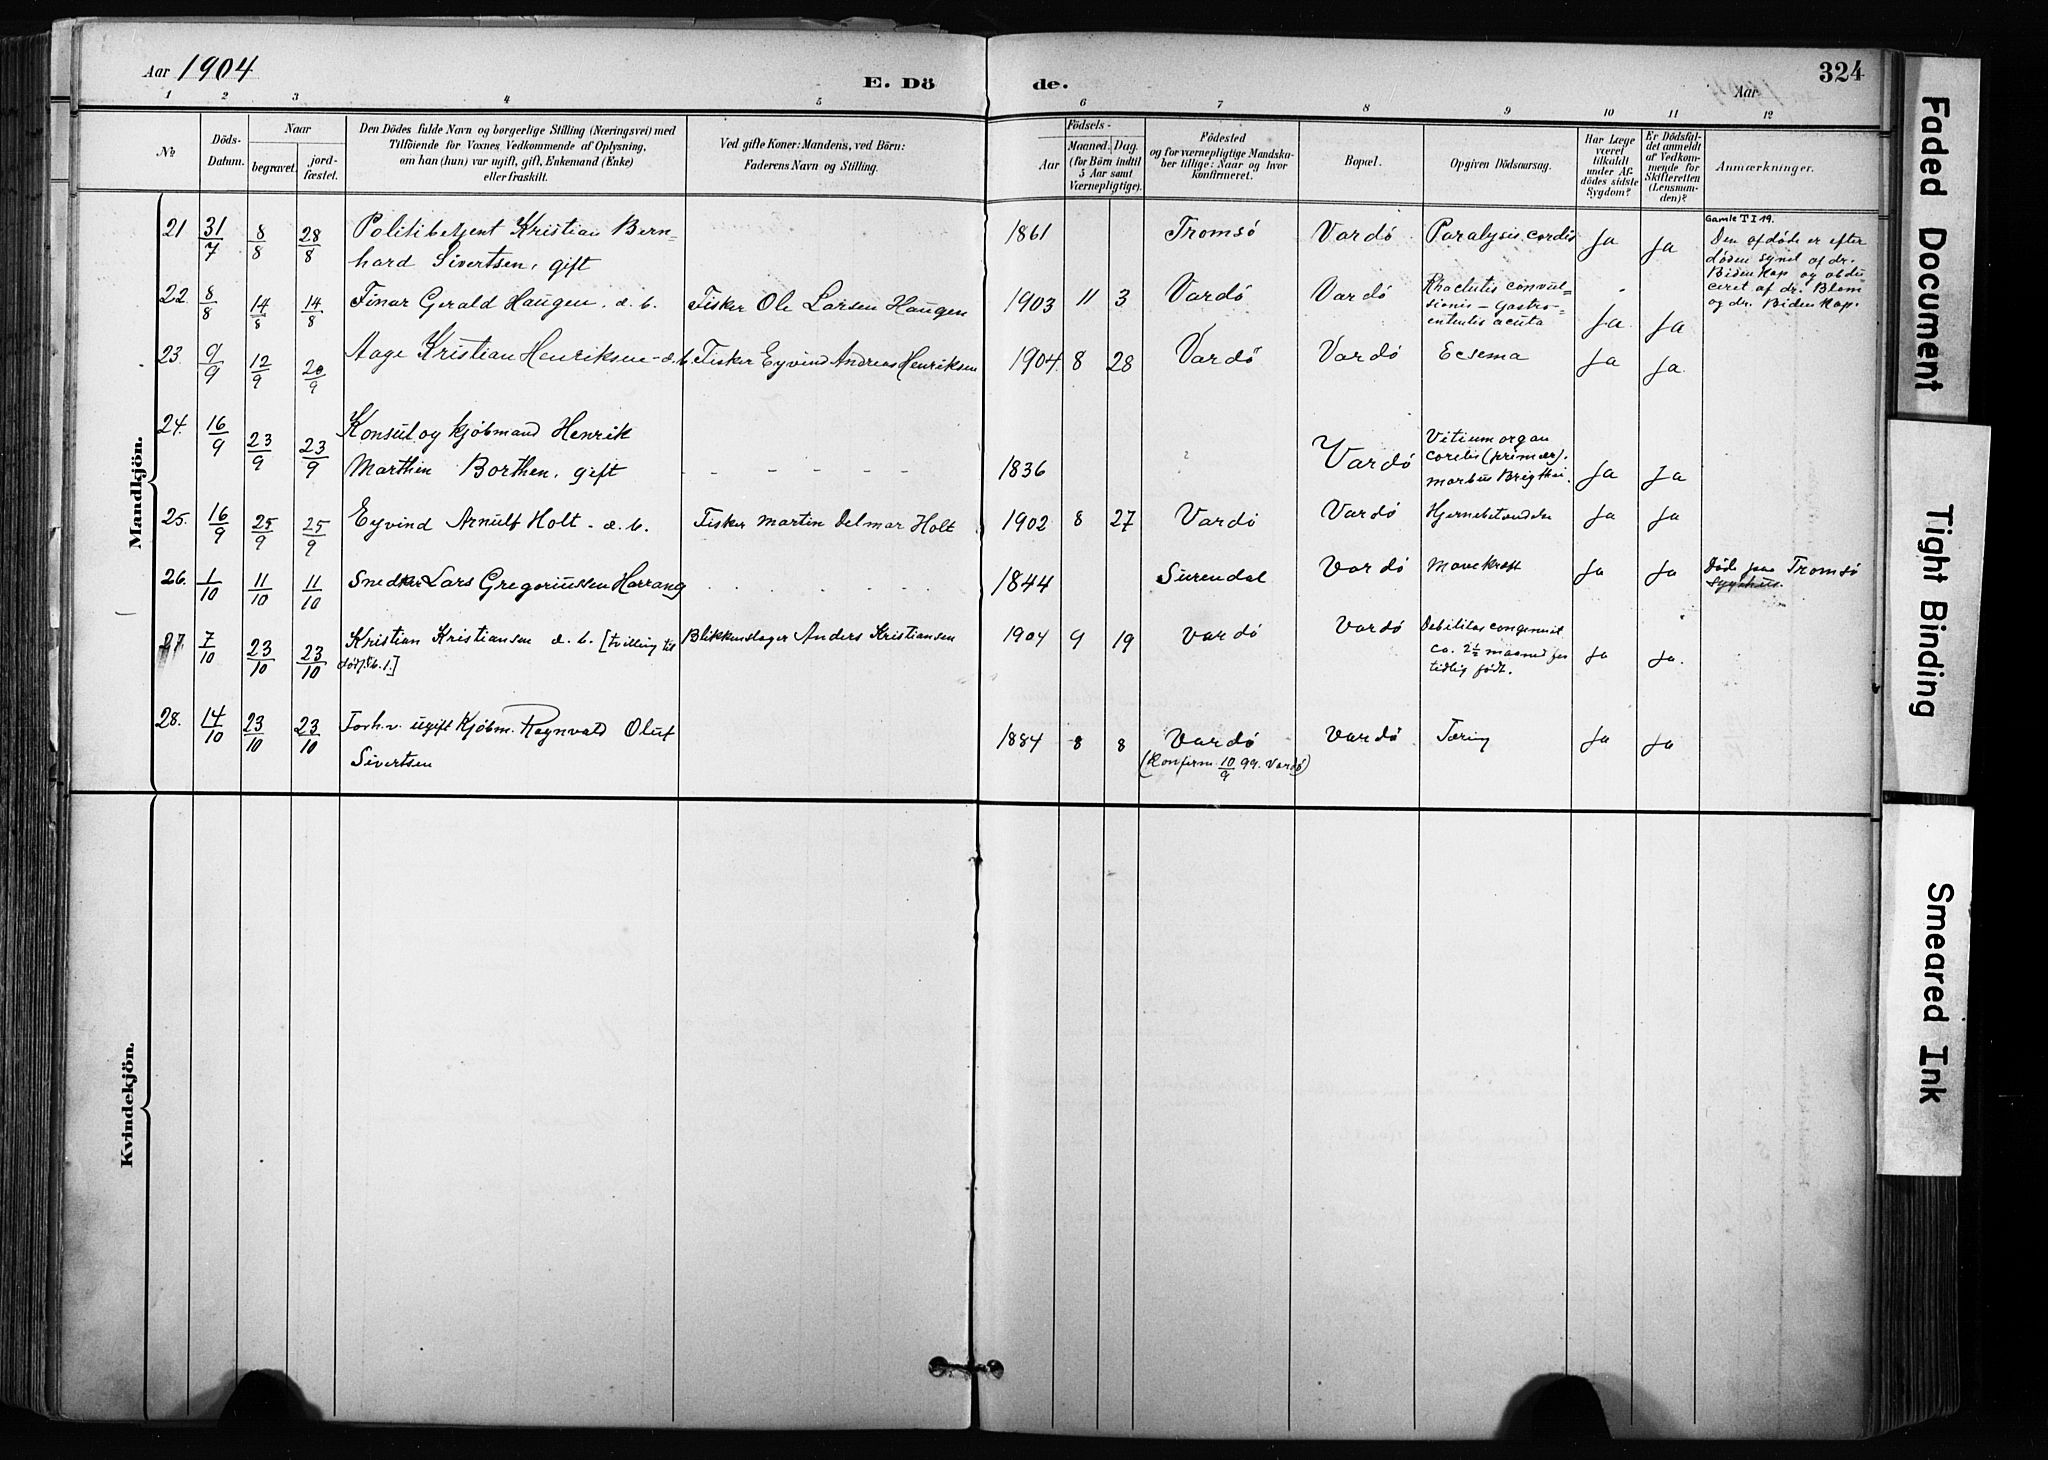 Aar 1904
E. Dö
de.
324
Aar
1 2 3 4 5 6 7 8 9 10 11 12
No
Döds-
Datum.
Naar
begravet.
jord-
fæstet.
Den Dödes fulde Navn og borgerlige Stilling (Næringsvei) med
Tilföiende for Voxnes Vedkommende af Oplysning,
om han (hun) var ugift, gift, Enkemand (Enke)
eller fraskilt.
Ved gifte Koner: Mandens, ved Börn:
Faderens Navn og Stilling.
Födsels-
Aar
Maaned.
Dag.
(for Börn indtil
5 Aar samt
Værnepligtige).
Födested
og for værnepligtige Mandska-
ber tillige: Naar og hvor
Konfirmeret.
Bopæl.
Opgiven Dödsaarsag.
Har Læge
været
tilkaldt
under Af-
dödes sidste
Sygdom?
Er Dödsfal-
det anmeldt
af Vedkom-
mende for
Skifteretten
(Lensman-
den)?
Anmærkninger.
Mandkjön.
21 31/7 8/8 28/8 Politibetjent Kristian Bern=
hard Sivertsen, gift
1861 Tromsö Vardö Paralysis cordis Ja Ja
Gamle T I 19.
Den afdöde er efter
döden synet af dr.
Bidenkap og obdu
ceret af dr. Blom
og dr. Bidenkap.
22. 8/8 14/8 14/8 Einar Gerald Haugen. æ. b. Fisker Ole Larsen Haugen 1903 11 3 Vardö Vardö Rhachitis convul=
sionis - gastro-
enteritis acuta Ja Ja
23. 9/9 12/9 20/9 Aage Kristian Henriksen - æ. b. Fisker Eyvind Andreas Henriksen 1904 8 28 Vardö Vardö Ecsema Ja Ja.
24. 16/9 23/9 23/9 Konsul og kjöbmand Henrik
Marthin Borthen, gift - - - - - - 1836 Vardö Vitium organ
cordis (primær).
morbus Brigthii. Ja Ja
25. 16/9 25/9 25/9 Eyvind Arnulf Holt - æ. b. Fisker Martin Delmar Holt 1902 8 27 Vardö Vardö Hjernebetændelse Ja Ja
26. 1/10 11/10 11/10 Snedker Lars Gregoriussen Harrang 1844 Surendal Vardö Mavekræft Ja Ja Död paa Tromsö
Sygehus.
27. 7/10 23/10 23/10 Kristian Kristiansen æ. b. [tvilling til
dödf. 1.] Blikkenslager Anders Kristiansen 1904 9 19 Vardö Vardö Debilitas congenita
ca. 2½ maaned for
tidlig födt. Ja Ja.
28. 14/10 23/10 23/10 Forh.v. ugift Kjöbm. Ragnvald Oluf
Sivertsen 1884 8 8 Vardö
(Konfirm. 10/9 99. Vardö) Vardö Tæring Ja Ja
Kvindekjön.
Faded Document
Tight Binding
Smeared Ink